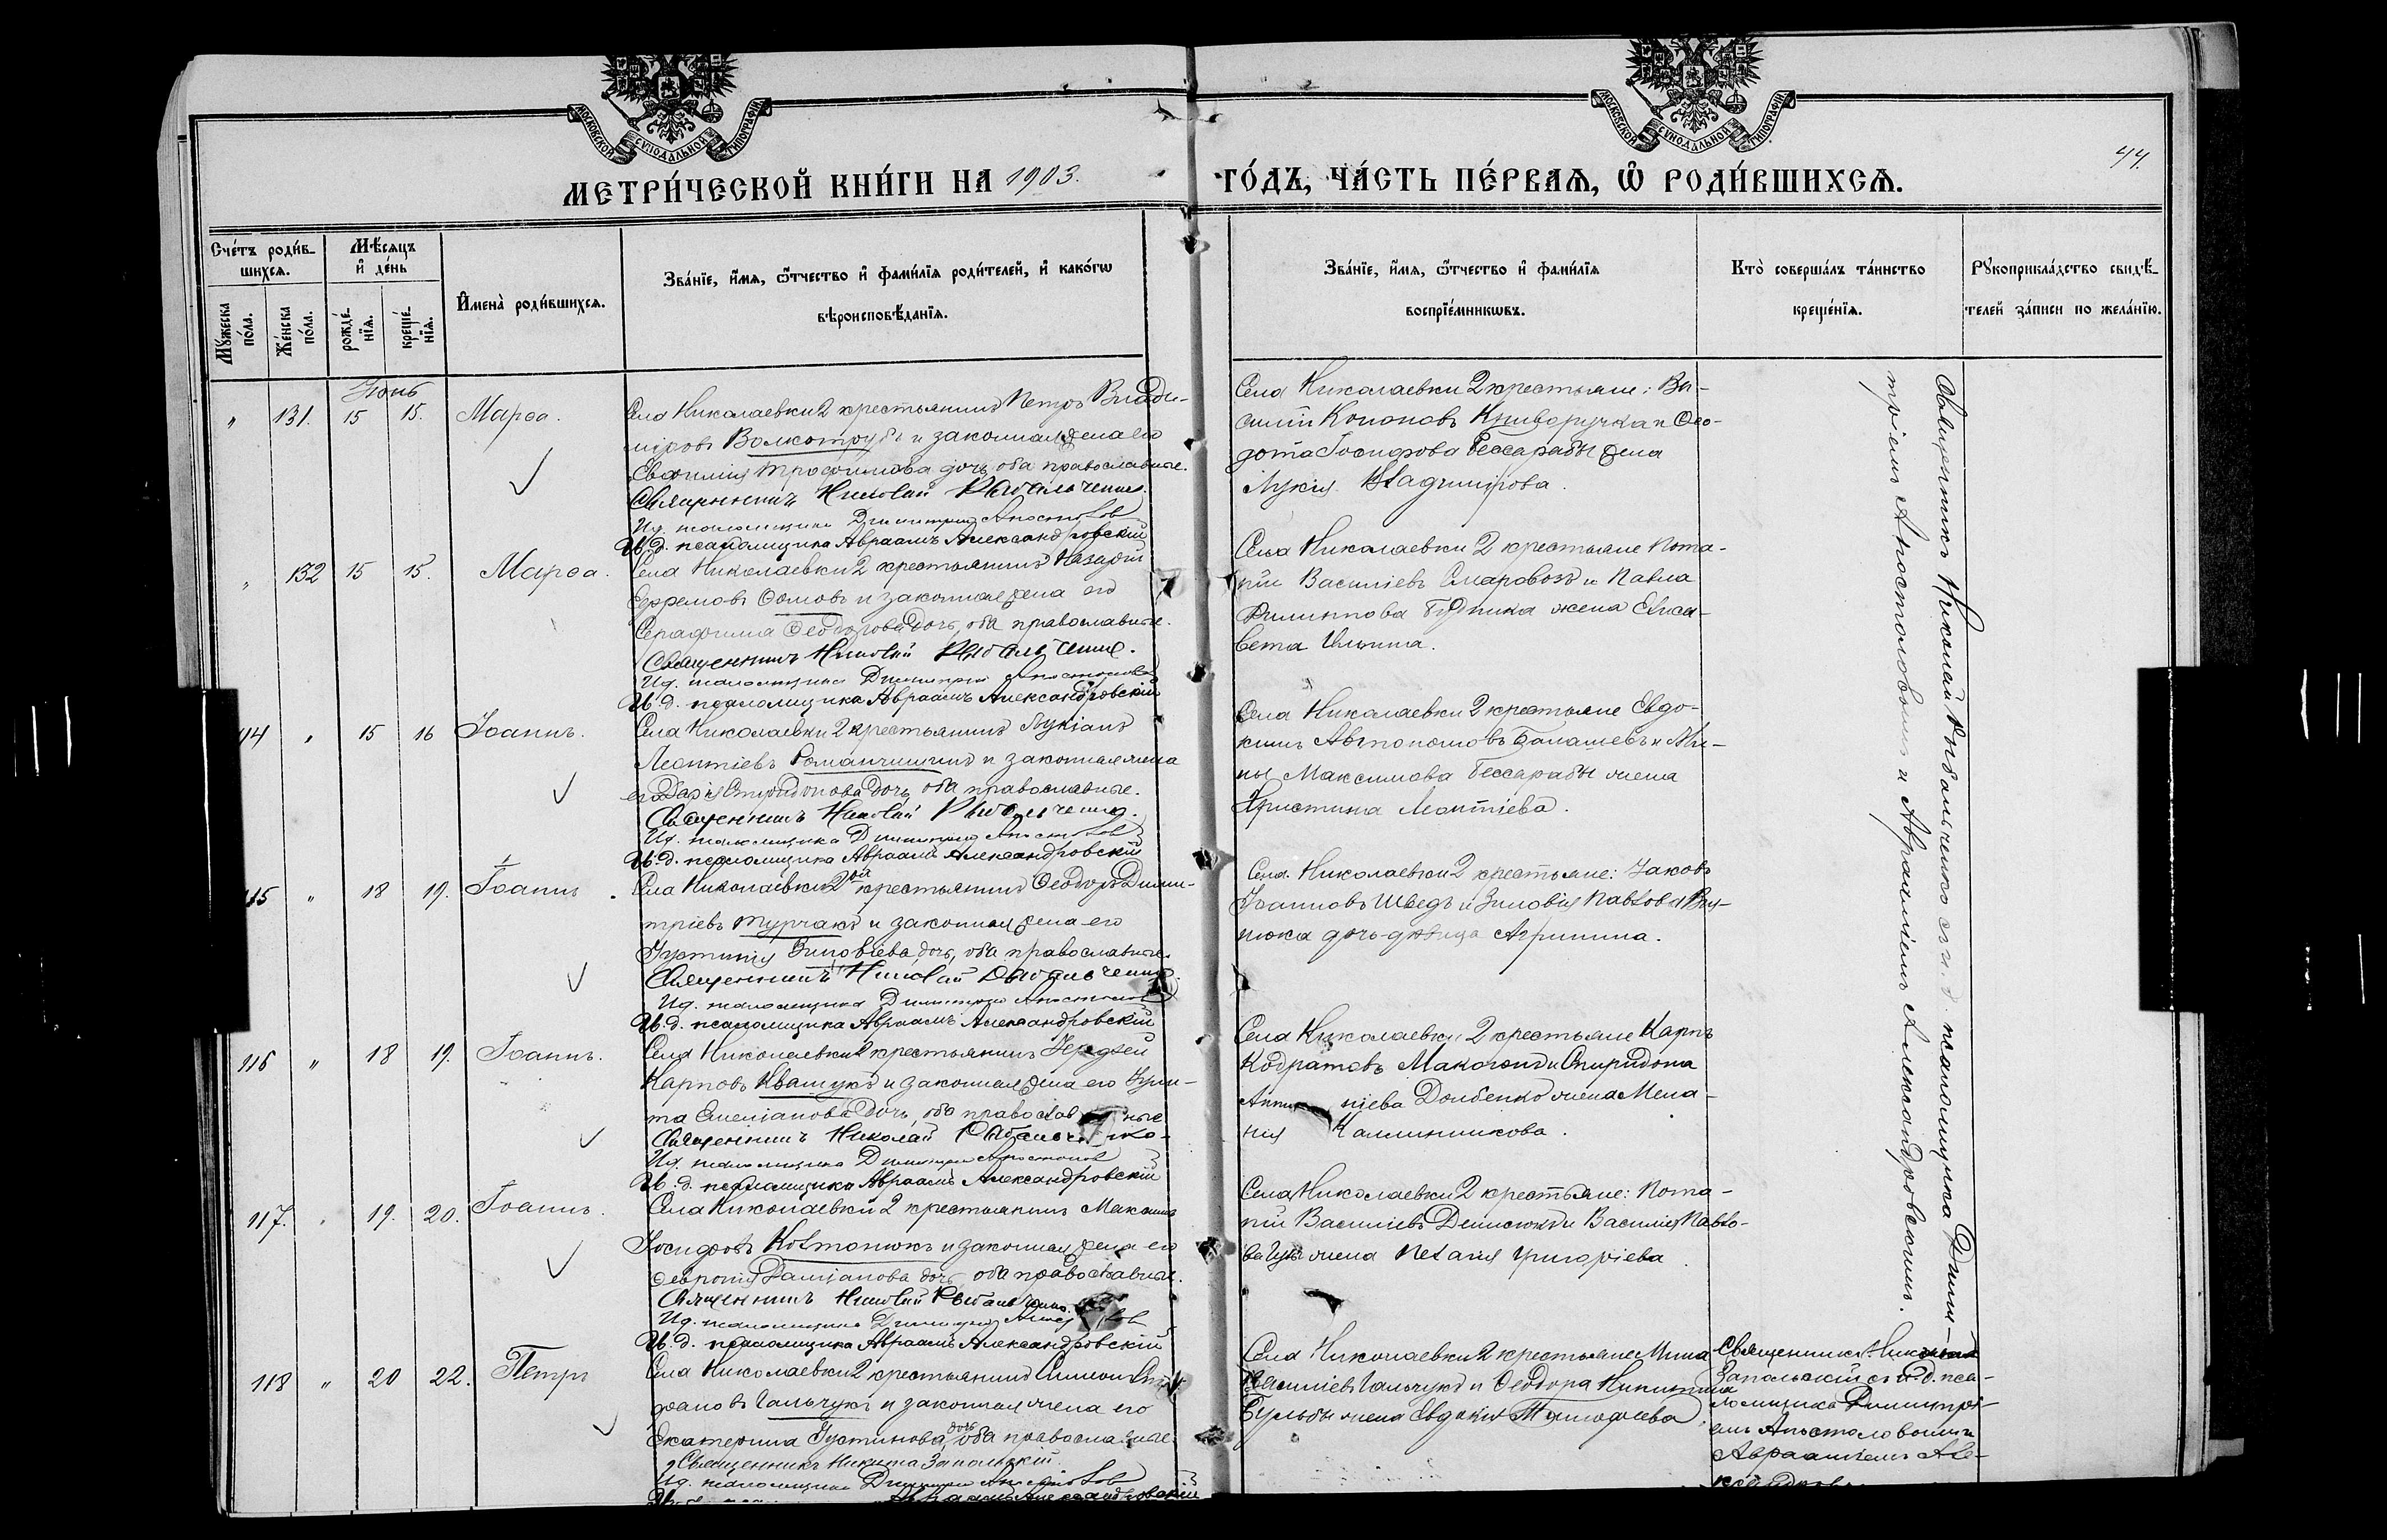 МОСКОВСКОЙ СѴНОДАЛЬНОЙ ТИПОГРАФІИ
МОСКОВСКОЙ СѴНОДАЛЬНОЙ ТИПОГРАФІИ
44.
МЕТРИ́ЧЕСКОЙ КНИ́ГИ НА 1903. ГО́ДЪ, ЧА́СТЬ ПЕ́РВАѦ, Ѡ҆ РОДИ́ВШИХСѦ.
Сче́тъ роди́в-
шихсѧ.
Мꙋ́жеска по́ла.
Же́нска по́ла.
Мѣ́сѧцъ и҆ де́нь
рожде́-
нїѧ.
креще́-
нїѧ.
И҆мена̀ роди́вшихсѧ.
Зва́нїе, и҆́мѧ, ѻ҆́тчество и҆ фами́лїѧ роди́телей, и҆ како́гѡ
вѣроисповѣ́данїѧ.
Зва́нїе, и҆́мѧ, ѻ҆́тчество и҆ фами́лїѧ
воспрїе́мникѡвъ.
Кто̀ соверша́лъ та́инство
креще́нїѧ.
Рꙋкоприкла́дство свидѣ́-
телей за́писи по жела́нїю.
Іюнь
" 131. 15 15. Марѳа.
Села Николаевки 2 крестьянинъ Петръ Влади-
міровъ Волкотрубъ и законная жена его
Евфимія Трофимова дочь, оба православные.
Священникъ Николай Рыбальченко.
И.д. псаломщика Димитрій Апостолов
И.д. псаломщика Авраамъ Александровскій
Села Николаевки 2 крестьяне: Ва-
силій Кононовъ Криворучка и Ѳео-
дота Іосифова Бессарабы жена
Лукія Владимірова.
" 132 15 15. Марѳа.
Села Николаевки 2 крестьянинъ Назарій
Ефремовъ Ѳомовъ и законная жена его
Серафима Ѳеодорова дочь, оба православные.
Священникъ Николай Рыбальченко.
И.д. псаломщика Димитрій Апостолов
И.д. псаломщика Авраамъ Александровскій
Села Николаевки 2 крестьяне Пота-
пій Василіевъ Смаровозъ и Павла
Филиппова Будника жена Елиса-
вета Ильина.
114 " 15 16 Іоаннъ.
Села Николаевки 2 крестьянинъ Лукіанъ
Леонтіевъ Романчишинъ и законная жена
его Дарія Спиридонова дочь, оба православные.
Священникъ Николай Рыбальченко.
И.д. псаломщика Димитрій Апостолов
И.д. псаломщика Авраамъ Александровскій
Села Николаевки 2 крестьяне Евдо-
кимъ Автономовъ Балашевъ и Ми-
ны Максимова Бессарабы жена
Христина Леонтіева.
115 " 18 19. Іоаннъ.
Села Николаевки 2ой крестьянинъ Ѳеодоръ Дими-
тріевъ Турчакъ и законная жена его
Іустинія Зиновіева дочь, оба православные.
Священникъ Николай Рыбальченко.
И.д. псаломщика Димитрій Апостолов
И.д. псаломщика Авраамъ Александровскій
Села Николаевки 2 крестьяне: Іаковъ
Іоанновъ Шведъ и Зиновія Павлова
дочь-дѣвица Агрипина.
116 " 18 19. Іоаннъ.
Села Николаевки 2 крестьянинъ
Карповъ Квашукъ и законная жена его
Емеліанова дочь, оба православные
Священникъ Николай Рыбальченко.
И.д. псаломщика Димитрій Апостолов
И.д. псаломщика Авраамъ Александровскій
Села Николаевки 2 крестьяне Карпъ
Кодратовъ Макогонъ и Спиридона
Долбенко жена Мела-
нія Каллиникова.
117. " 19. 20. Іоаннъ.
Села Николаевки 2 крестьянинъ Максимъ
Іосифовъ Ковтонюкъ и законная жена его
Февронія Даміанова дочь, оба православные.
Священникъ Николай Рыбальченко.
И.д. псаломщика Димитрій Апостолов
И.д. псаломщика Авраамъ Александровскій
Села Николаевки 2 крестьяне: Пота-
пій Василіевъ Денисюкъ и Василія Павло-
ва жена Пелагія Григоріева
Священникъ Николай Рыбальченко с и.д. псаломщика Дими-
тріемъ Апостоловымъ и Авраамомъ Александровскимъ.
118 " 20 22. Петръ
Села Николаевки 2 крестьянинъ Симеонъ Сте-
фановъ Гальчукъ и законная жена его
Екатерина Іустинова дочь, оба православные.
Священникъ Никита Запольскій.
И.д. псаломщика Димитрій Апостолов
Авраамъ Александровскій
Села Николаевки 2 крестьяне Мина
Василіевъ Гальчукъ и Ѳеодора Никитина
Бульбы жена Евдокія Тимофеева
Священникъ
Запольскій с и.д. пса-
ломщика Димитрі-
емъ Апостоловымъ и
Авраамомъ Але-